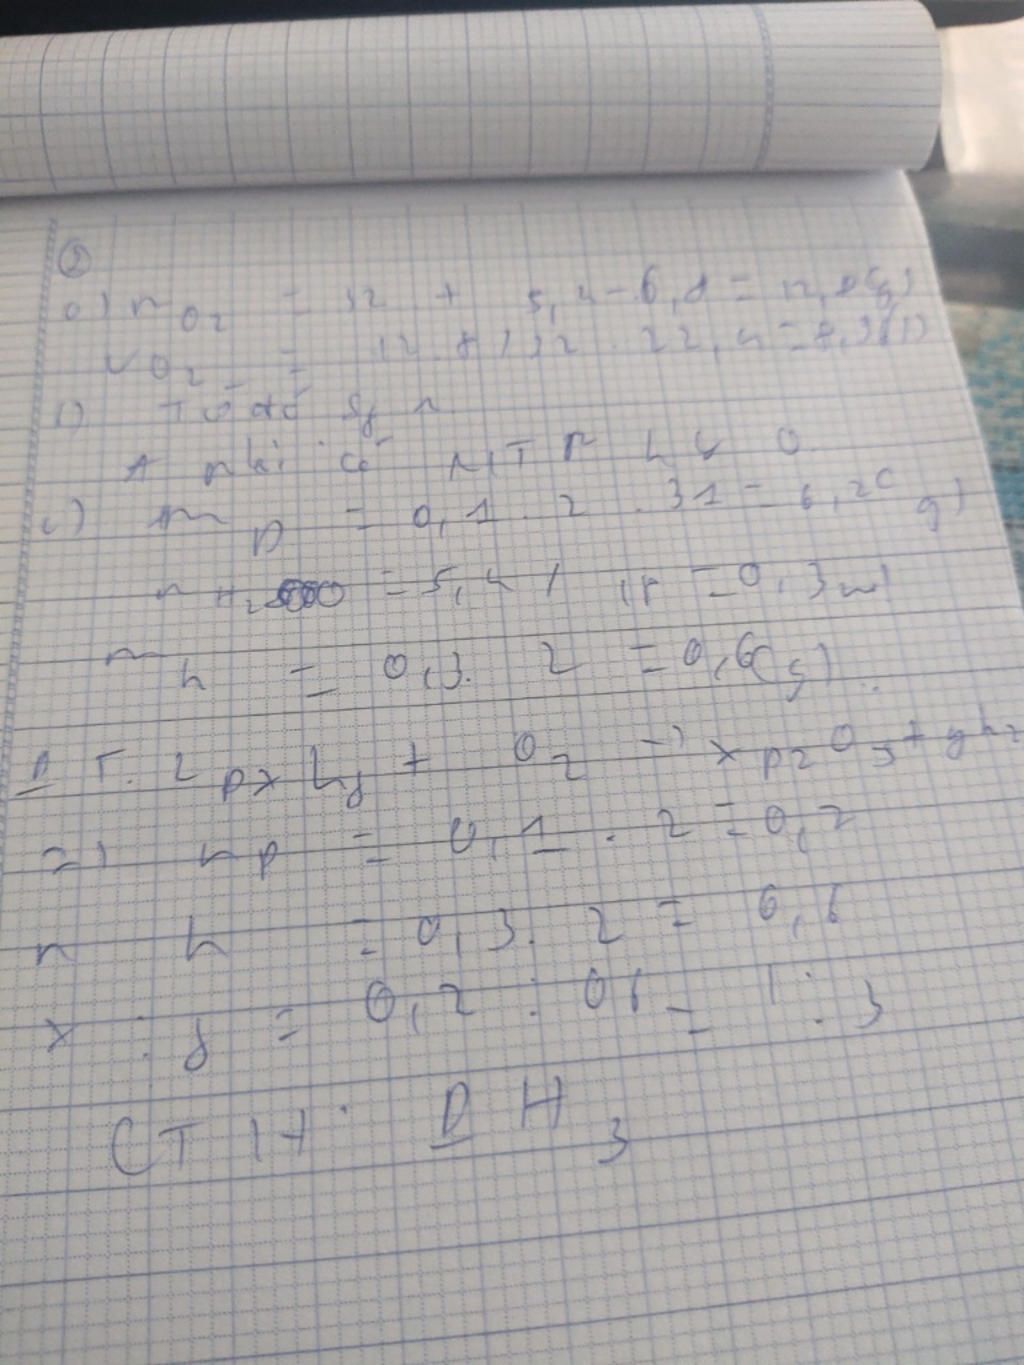 ②
a) m O2 = 12 + 5,4 - 6,8 = 12,8(g)
V O2 = 12,8 / 32 . 22,4 = 8,96(l)
Từ đó
A khi có
c) m P = 0,1 . 2 . 31 = 6,2(g)
n H2 = 5,4 / 18 = 0,3 mol
m h = 0,3 . 2 = 0,6(g)
PT: 2 Px Hy + O2 -> x P2 O5 + y h2
n P = 0,1 . 2 = 0,2
n h = 0,3 . 2 = 0,6
x : y = 0,2 : 06 = 1 : 3
CTH: PH3